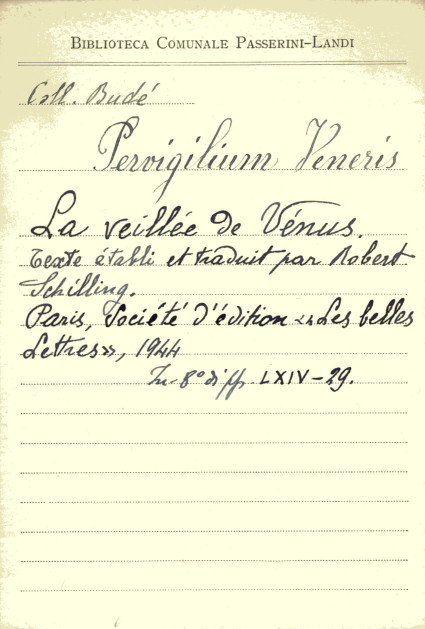 BIBLIOTECA COMUNALE PASSERINI-LANDI
Coll. Budé
Pervigilium Veneris
La veillée de Vénus.
Texte établi et traduit par Robert
Schilling.
Paris, Société d'édition «Les belles
Lettres», 1944
In-8° di pp. LXIV-29.